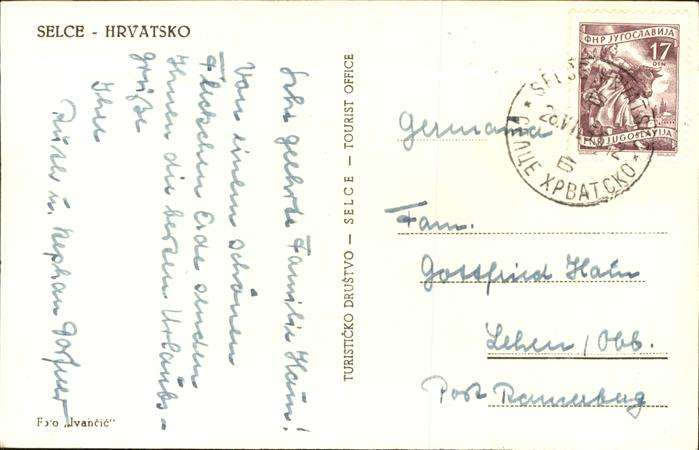 SELCE - HRVATSKO
Sehr geehrte Familie Hain!
Von einem schönen
Fleckchen Erde senden
Ihnen die besten Urlaubs-
grüße
Ihre
u. Stephan
Foto „Ivančić“
TURISTIČKO DRUŠTVO — SELCE — TOURIST OFFICE
ФНР ЈУГОСЛАВИЈА
17
DIN
FNR JUGOSLAVIJA
СЕЛЦЕ ХРВАТСКО
Germania
Fam.
Gottfried Hain
Lehen / Obb.
Post Ramerberg